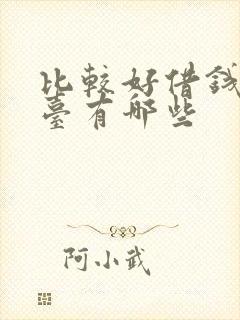 比較好借錢
臺有哪些
阿小武